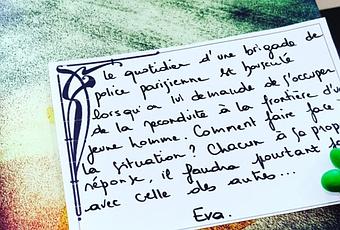 Le quotidien d'une brigade de
police parisienne est bousculé
lorsqu'on lui demande de s'occuper
de la reconduite à la frontière d'un
jeune homme. Comment faire face à
la situation ? Chacun a sa prop
réponse, il faudra pourtant fa
avec celle des autres...
Eva.